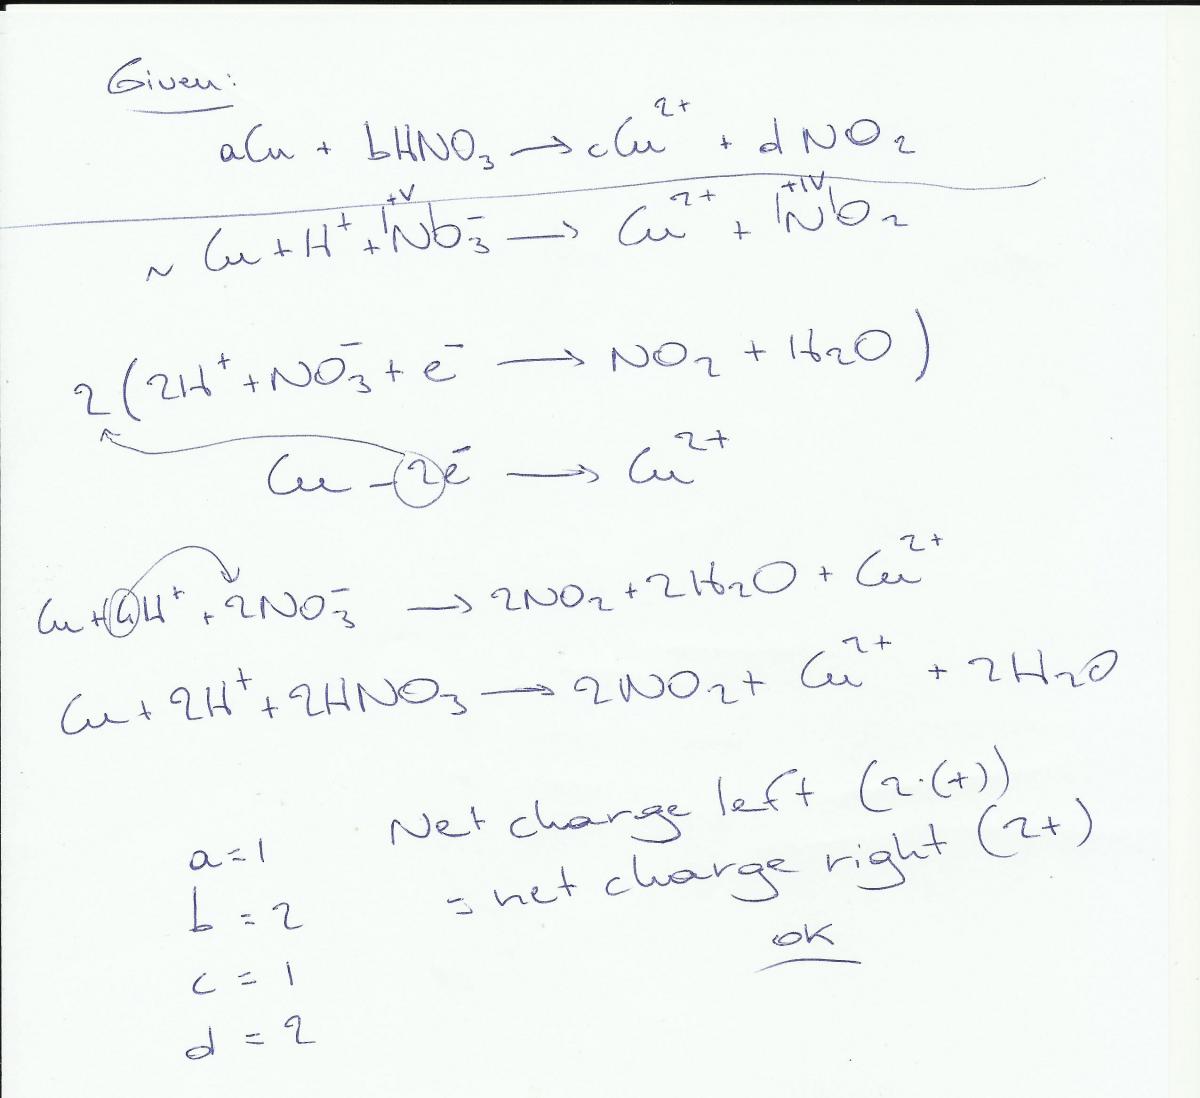 Given:
aCu + bHNO₃ → cCu²⁺ + dNO₂
+V +IV
~ Cu + H⁺ + |N|O₃⁻ → Cu²⁺ + |N|O₂
2(2H⁺ + NO₃⁻ + e⁻ → NO₂ + H₂O)
Cu - 2e⁻ → Cu²⁺
Cu + 4H⁺ + 2NO₃⁻ → 2NO₂ + 2H₂O + Cu²⁺
Cu + 2H⁺ + 2HNO₃ → 2NO₂ + Cu²⁺ + 2H₂O
Net charge left (2·(+))
a=1
= net charge right (2+)
b = 2
OK
c = 1
d = 2